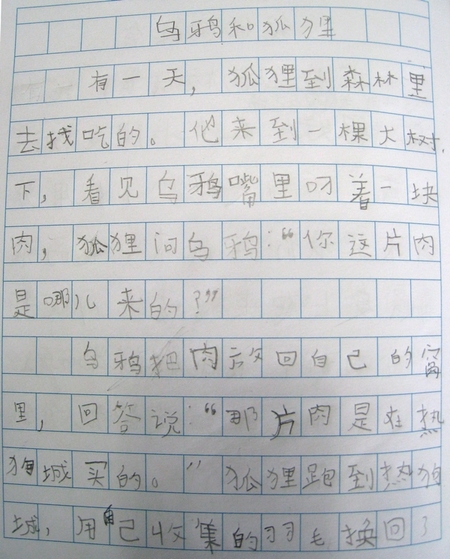 乌鸦和狐狸
有一天，狐狸到森林里
去找吃的。他来到一棵大树
下，看见乌鸦嘴里叼着一块
肉，狐狸问乌鸦：“你这片肉
是哪儿来的？”
乌鸦把肉放回自己的窝
里，回答说：“那片肉是在热
狗城买的。”狐狸跑到热狗
城，用自己收集的羽毛换回了